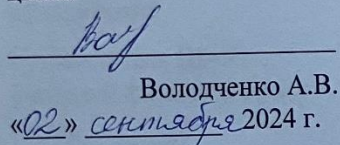 Володченко А.В.
«02» сентября 2024 г.